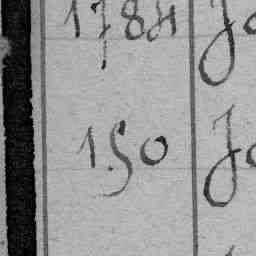 1784 Jo
150 Jo